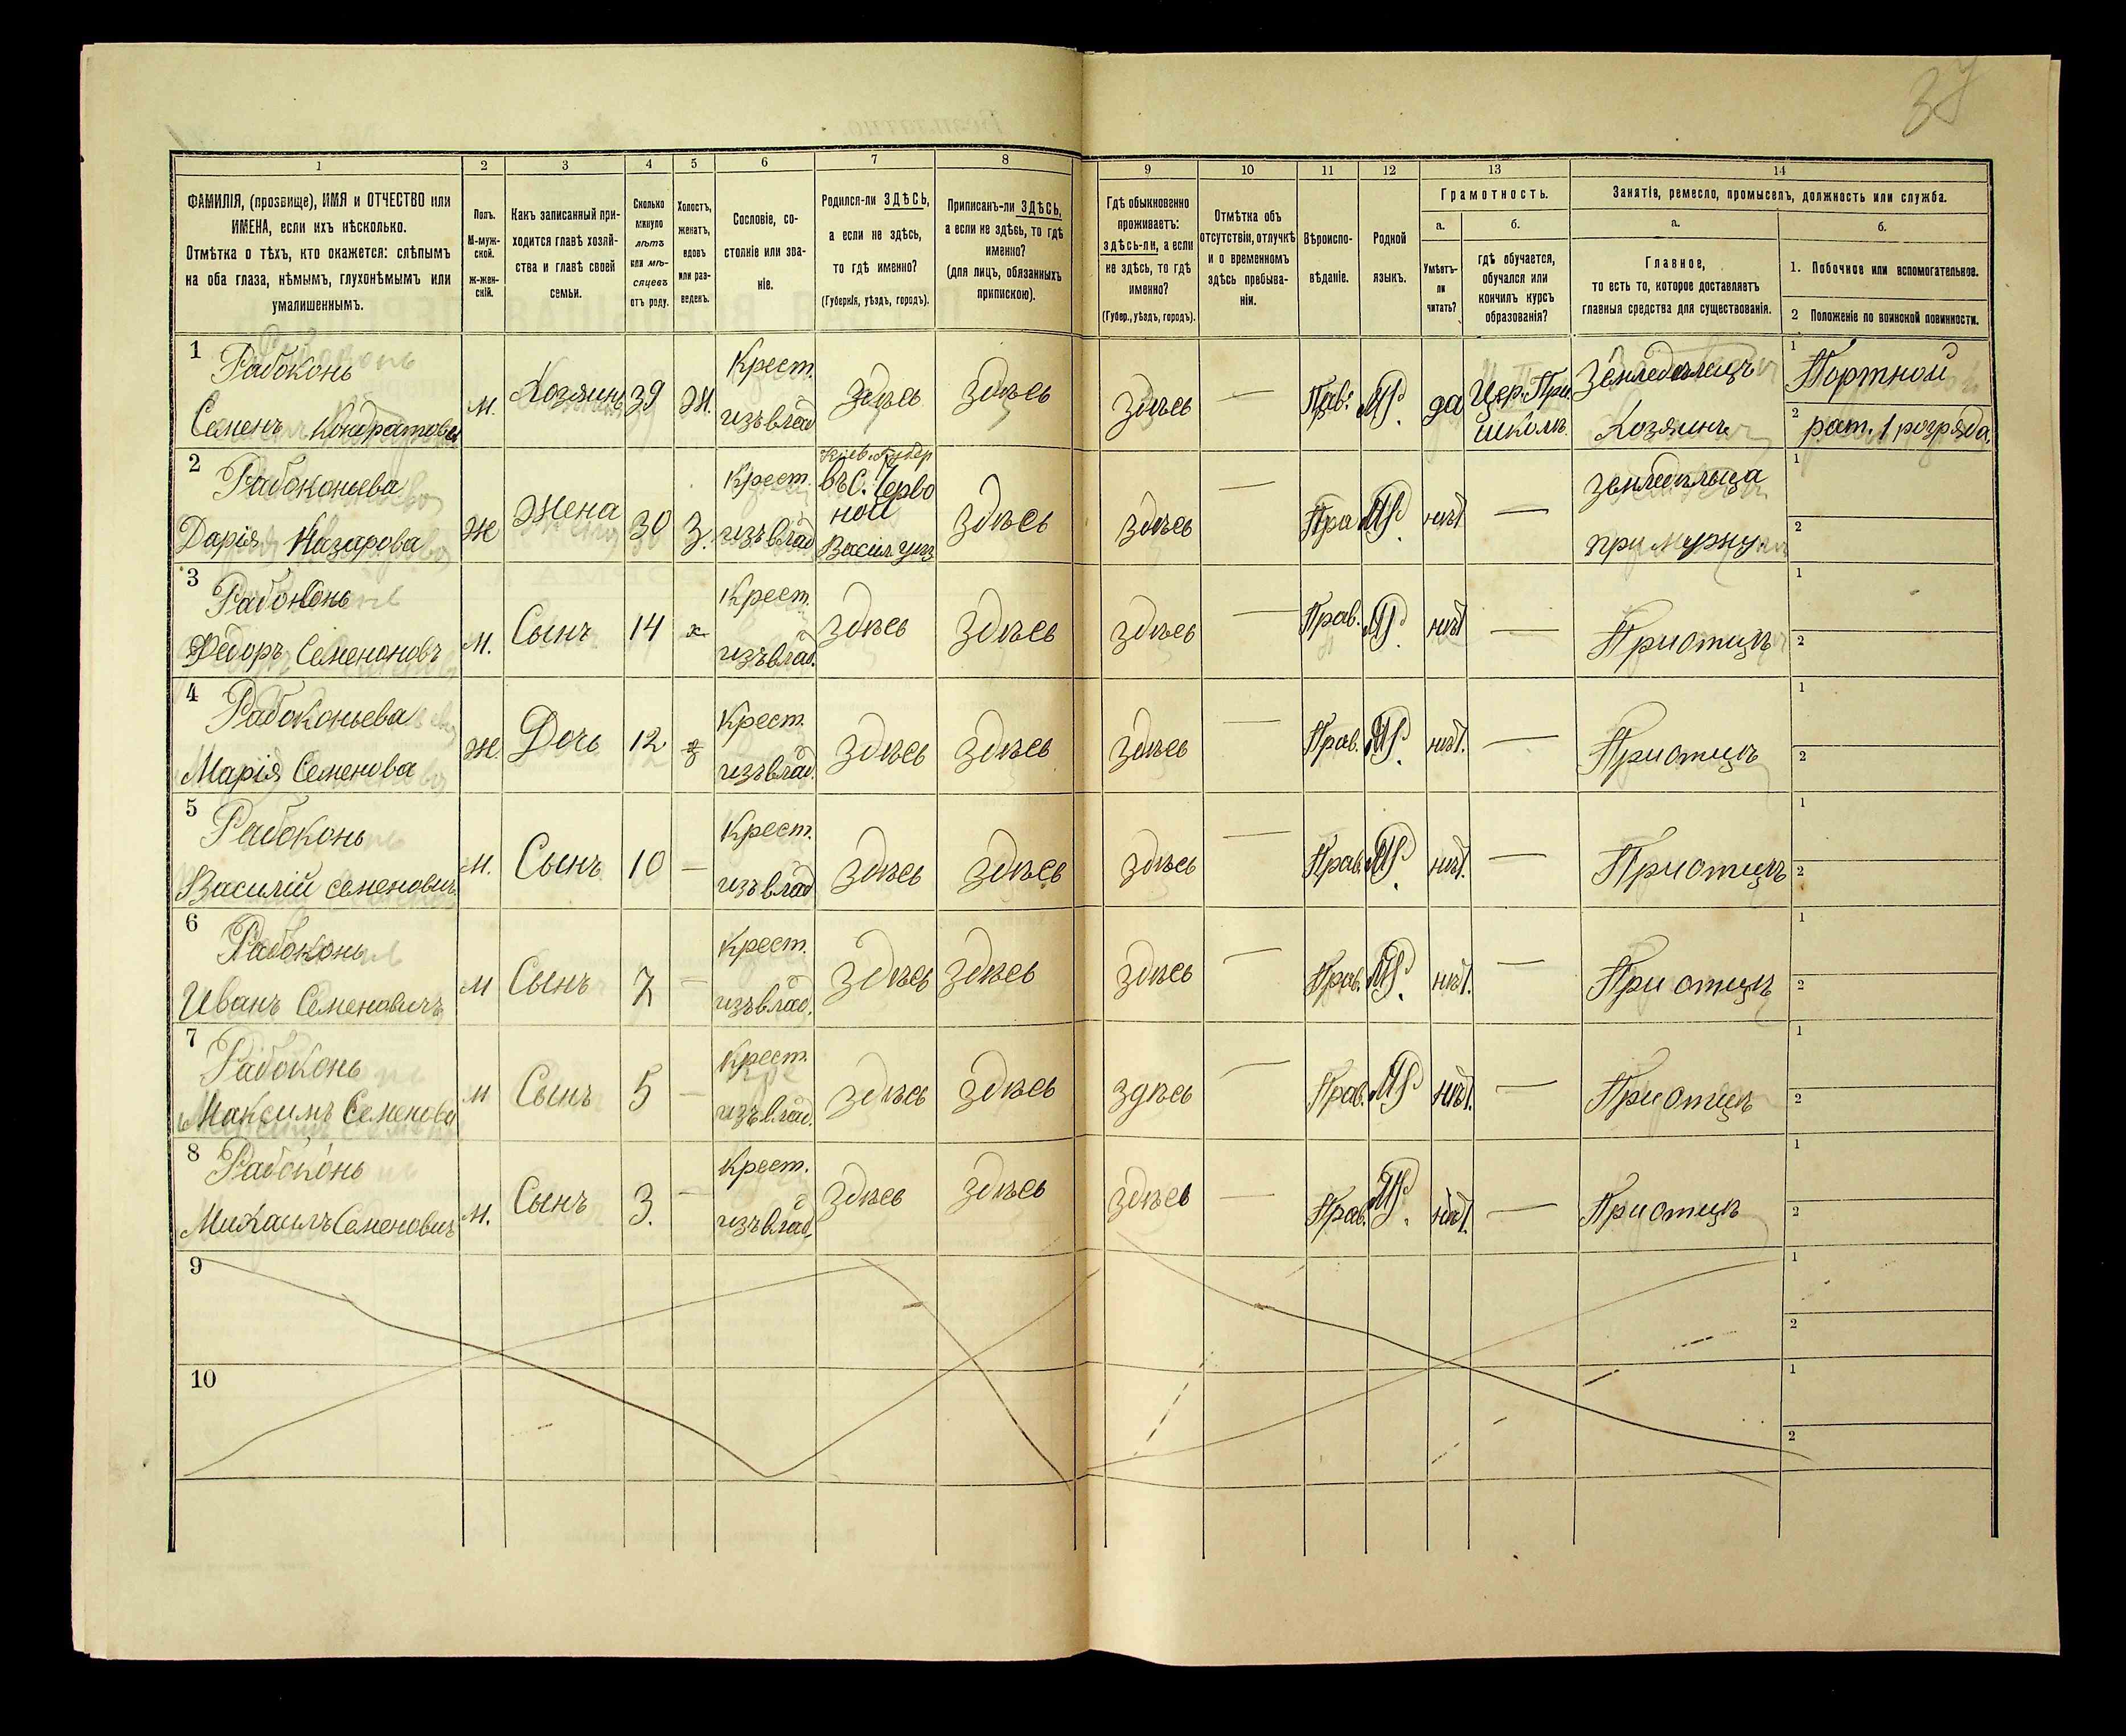 37
1 2 3 4 5 6 7 8 9 10 11 12 13 14
ФАМИЛІЯ, (прозвище), ИМЯ и ОТЧЕСТВО или
ИМЕНА, если ихъ нѣсколько.
Отмѣтка о тѣхъ, кто окажется: слѣпымъ
на оба глаза, нѣмымъ, глухонѣмымъ или
умалишеннымъ.
Полъ.
М-муж-
ской.
ж-жен-
скій.
Какъ записанный при-
ходится главѣ хозяй-
ства и главѣ своей
семьи.
Сколько
минуло
лѣтъ
или мѣ-
сяцевъ
отъ роду.
Холостъ,
женатъ,
вдовъ
или раз-
веденъ.
Сословіе, со-
стояніе или зва-
ніе.
Родился-ли ЗДѢСЬ,
а если не здѣсь,
то гдѣ именно?
(Губернія, уѣздъ, городъ).
Приписанъ-ли ЗДѢСЬ,
а если не здѣсь, то гдѣ
именно?
(для лицъ, обязанныхъ
припискою).
Гдѣ обыкновенно
проживаетъ:
здѣсь-ли, а если
не здѣсь, то гдѣ
именно?
(Губер., уѣздъ, городъ).
Отмѣтка объ
отсутствіи, отлучкѣ
и о временномъ
здѣсь пребыва-
ніи.
Вѣроиспо-
вѣданіе.
Родной
языкъ.
Грамотность.
а.
Умѣетъ-
ли
читать?
б.
гдѣ обучается,
обучался или
кончилъ курсъ
образованія?
Занятіе, ремесло, промыселъ, должность или служба.
а.
Главное,
то есть то, которое доставляетъ
главныя средства для существованія.
б.
1. Побочное или вспомогательное.
2 Положеніе по воинской повинности.
1 Рабоконь Крест. Земледѣлецъ 1 Портной
Семенъ Кондратовъ м. Хозяинъ 39 Ж. изъ влад здѣсь здѣсь здѣсь — Прав. М. да Цер. При школѣ. Хозяинъ 2 рат. 1 розряда
2 Рабоконьева Крест. Киев. Губер въ с. Черво земледѣльца 1
Дарія Назарова Ж Жена 30 З. изъ влад ной Васил уѣз здѣсь здѣсь — Пра М. нѣт — при мужу 2
3 Рабоконь Крест. 1
Федоръ Семеновъ м. Сынъ 14 х изъ влад. здѣсь здѣсь здѣсь — Прав. М. нѣт — При отцѣ 2
4 Рабоконьева Крест. 1
Марія Семенова Ж. Дочь 12 изъ влад. здѣсь здѣсь здѣсь — Прав. М. нѣт. — При отцѣ 2
5 Рабоконь Крест. 1
Василій Семеновичъ м. Сынъ 10 — изъ влад здѣсь здѣсь здѣсь — Прав. М. нѣт. — При отцѣ 2
6 Рабоконь Крест. 1
Иванъ Семеновичъ м Сынъ 7 — изъ влад. здѣсь здѣсь здѣсь — Прав. М. нѣт. — При отцѣ 2
7 Рабоконь Крест. 1
Максимъ Семенова м Сынъ 5 — изъ влад. здѣсь здѣсь здѣсь — Прав. М. нѣт. — При отцѣ 2
8 Рабоконь Крест. 1
Михаилъ Семеновичъ м. Сынъ 3. — изъ влад. здѣсь здѣсь здѣсь — Прав. М. нѣт. — При отцѣ 2
9 1
2
10 1
2